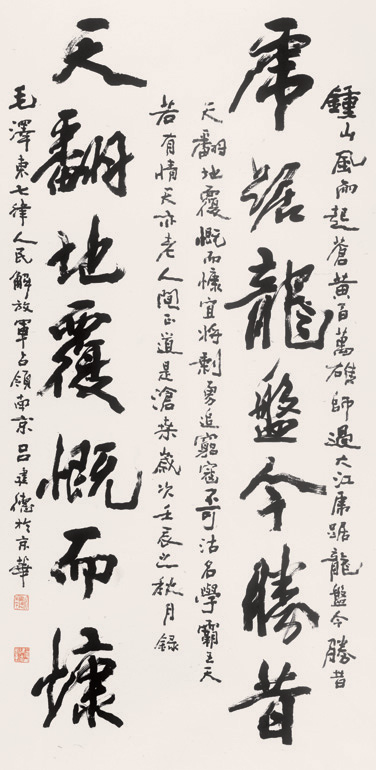 鍾山風雨起蒼黄百萬雄師過大江虎踞龍盤今勝昔
虎踞龍盤今勝昔
天翻地覆慨而慷宜將剩勇追窮寇不可沽名學霸王天
若有情天亦老人間正道是滄桑歲次壬辰之秋月錄
天翻地覆慨而慷
毛澤東七律人民解放軍占領南京吕建德於京華